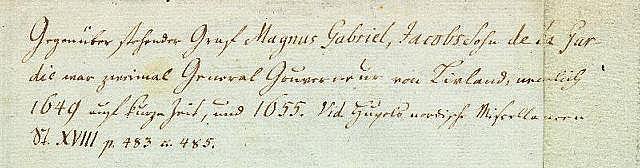 Gegenüber stehender Graf Magnus Gabriel, Jacobs Sohn de la Gar-
die war zweimal General Gouverneur von Livland, nemlich
1649 auf kurze Zeit, und 1655. Vid. Hupels nordische Miscellaneen
St. XVIII p. 483 u. 485.